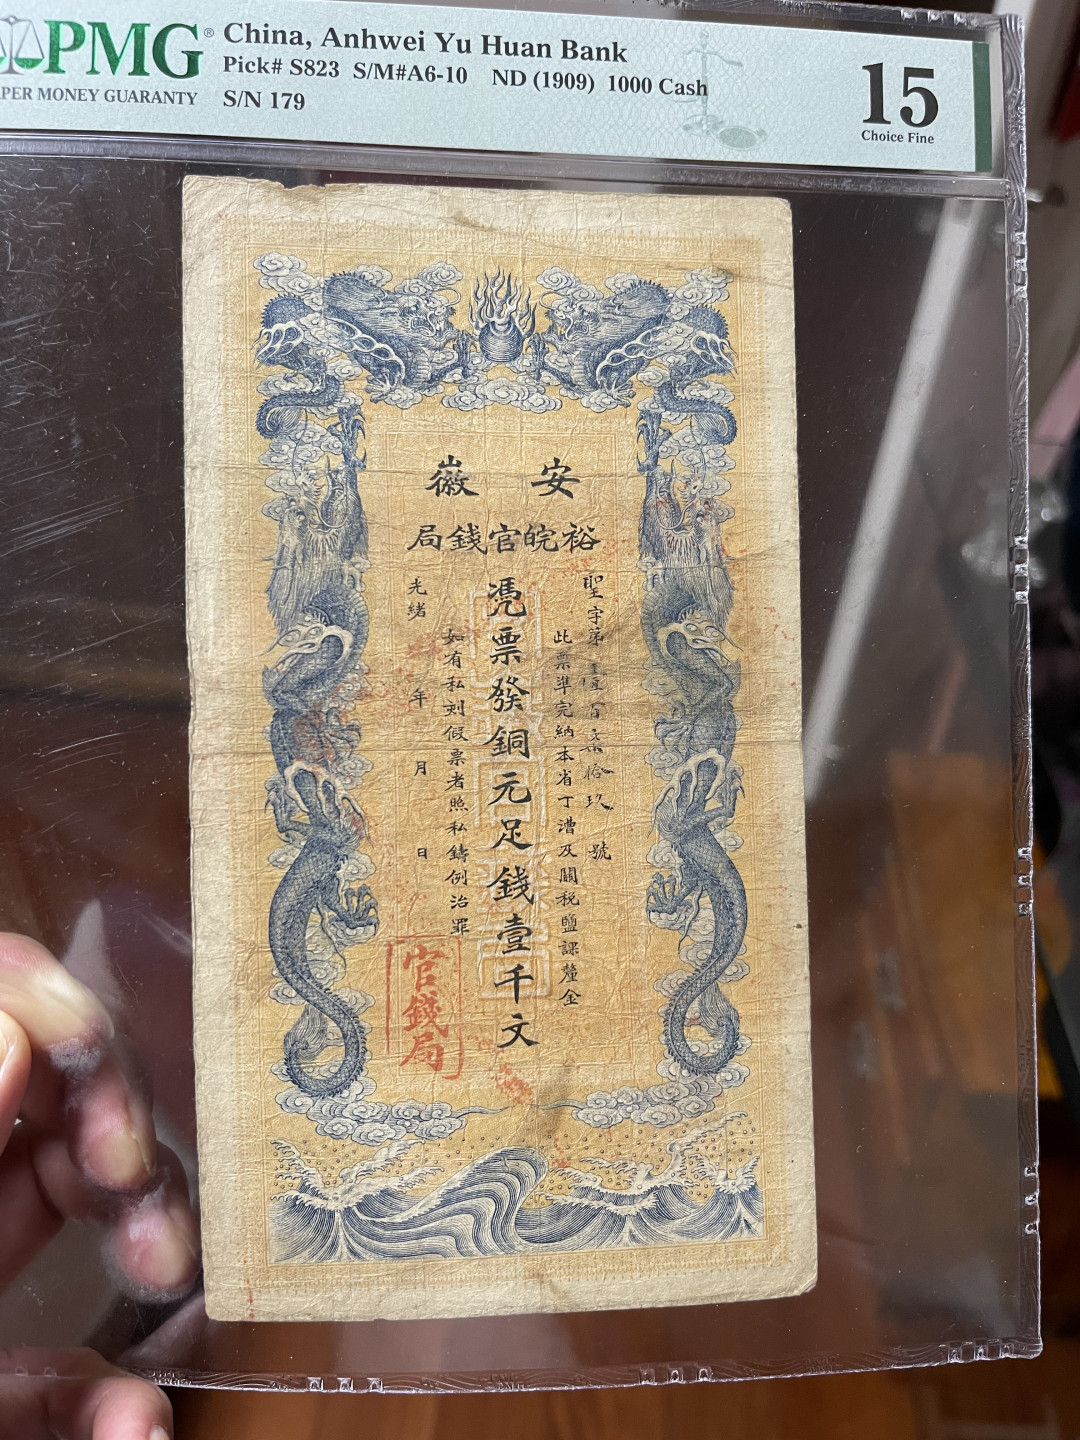 PMG®
PER MONEY GUARANTY
China, Anhwei Yu Huan Bank
Pick# S823 S/M#A6-10 ND (1909) 1000 Cash
S/N 179
15
Choice Fine
安徽
裕皖官錢局
聖字第壹百柒拾玖號
此票準完納本省丁漕及關稅鹽課釐金
憑票發銅元足錢壹千文
如有私刻假票者照私鑄例治罪
光緒 年 月 日
官錢局